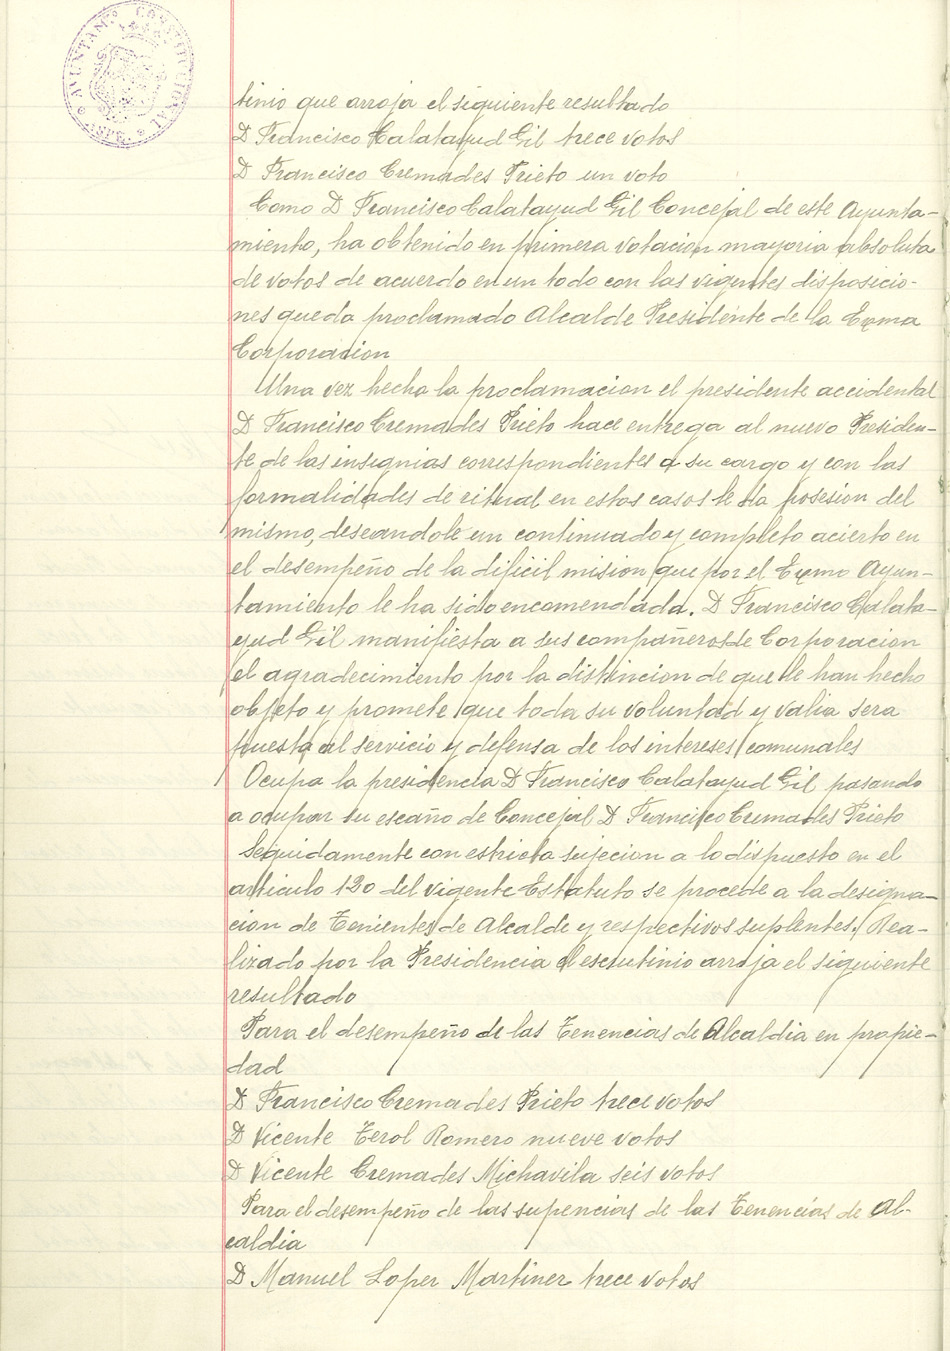 AYUNTAMº CONSTITUCIONAL
tinio que arroja el siguiente resultado
D Francisco Calatayud Gil trece votos
D Francisco Cremades Prieto un voto
Como D Francisco Calatayud Gil Concejal de este Ayunta-
miento, ha obtenido en primera votacion mayoria absoluta
de votos de acuerdo en un todo con las vigentes disposicio-
nes queda proclamado Alcalde Presidente de la Exma
Corporacion
Una vez hecha la proclamacion el presidente accidental
D Francisco Cremades Prieto hace entrega al nuevo Presiden-
te de las insignias correspondientes a su cargo y con las
formalidades de ritual en estos casos le da posesion del
mismo, deseandole un continuado y completo acierto en
el desempeño de la dificil mision que por el Exmo Ayun-
tamiento le ha sido encomendada. D Francisco Calata-
yud Gil manifiesta a sus compañeros de Corporacion
el agradecimiento por la distincion de que le han hecho
objeto y promete que toda su voluntad y valia sera
puesta al servicio y defensa de los intereses comunales
Ocupa la presidencia D Francisco Calatayud Gil pasando
a ocupar su escaño de Concejal D Francisco Cremades Prieto
Seguidamente con estricta sujecion a lo dispuesto en el
articulo 120 del vigente Estatuto se procede a la designa-
cion de Tenientes de Alcalde y respectivos suplentes, Rea-
lizado por la Presidencia el escrutinio arroja el siguiente
resultado
Para el desempeño de las Tenencias de Alcaldia en propie-
dad
D Francisco Cremades Prieto trece votos
D Vicente Terol Romero nueve votos
D Vicente Cremades Michavila seis votos
Para el desempeño de las supencias de las Tenencias de Al-
caldia
D Manuel Loper Martiner trece votos